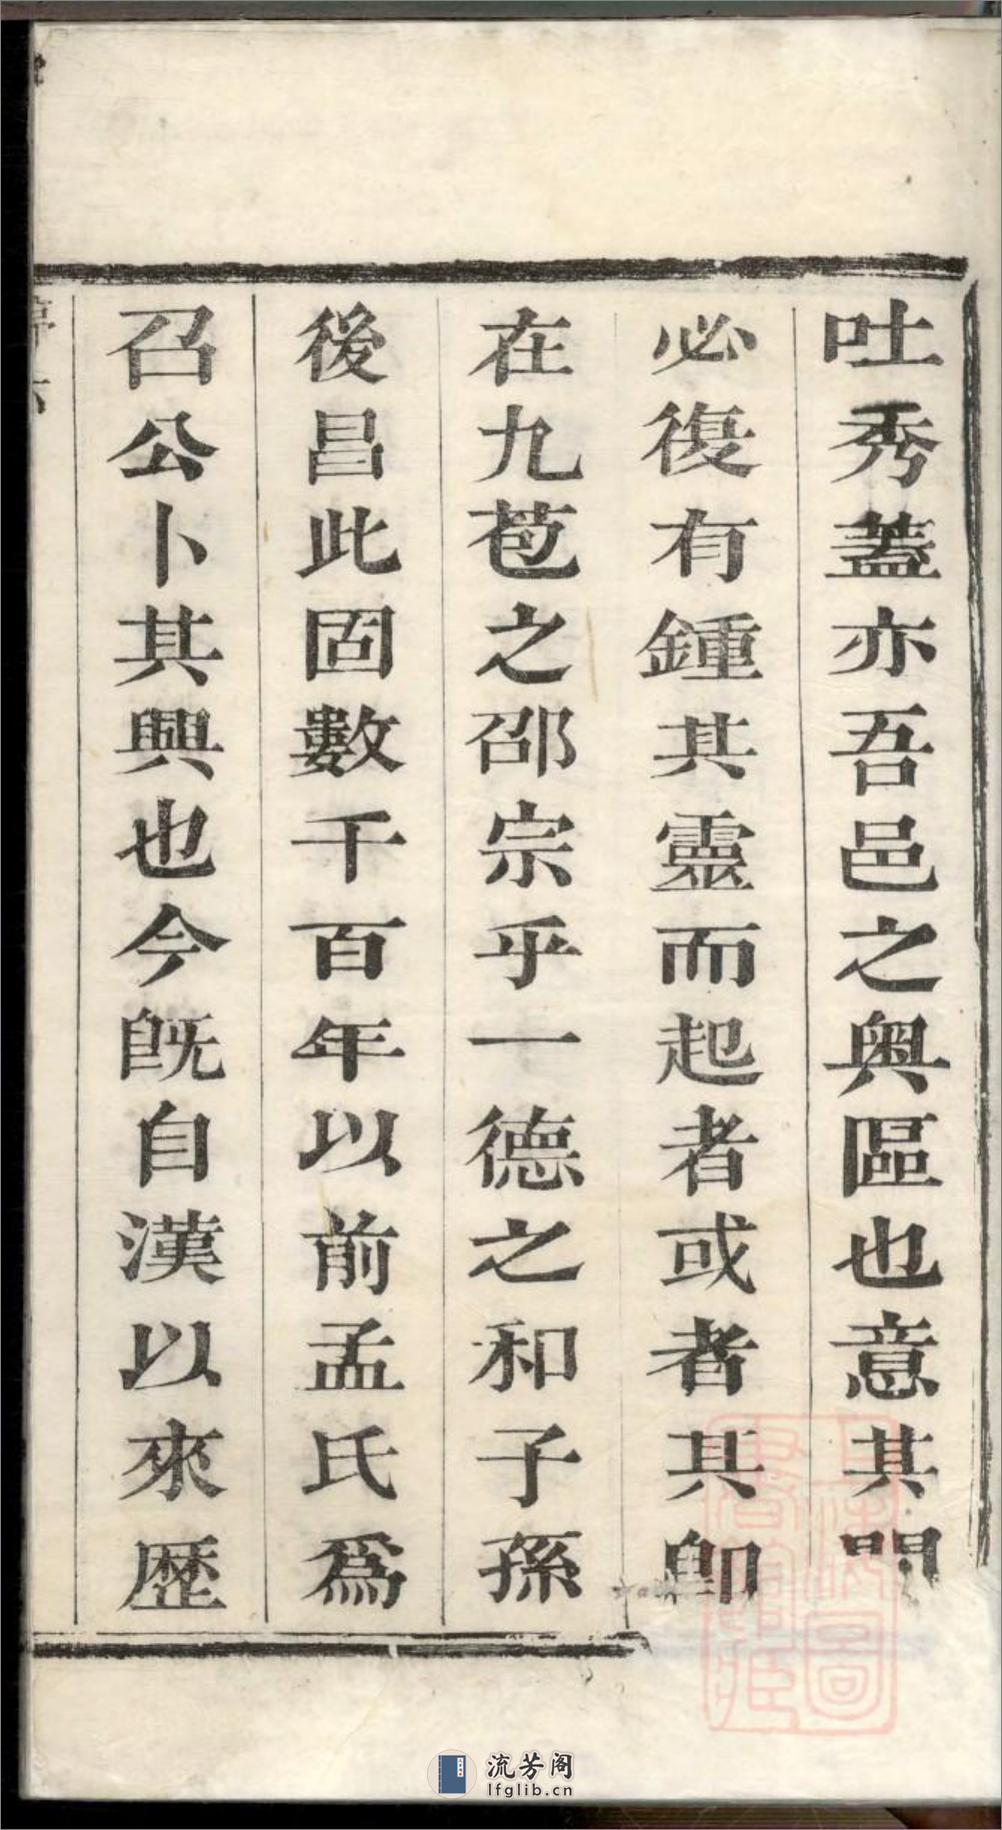 吐秀蓋亦吾邑之奥區也意其間
必復有鍾其靈而起者或者其卽
在九苞之邵宗乎一德之和子孫
後昌此固數千百年以前孟氏爲
召公卜其興也今既自漢以來歷
流芳阁
lfglib.cn